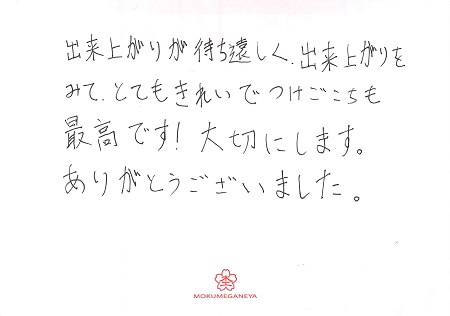 出来上がりが待ち遠しく、出来上がりを
みて、とてもきれいでつけごこちも
最高です！大切にします。
ありがとうございました。
MOKUMEGANEYA